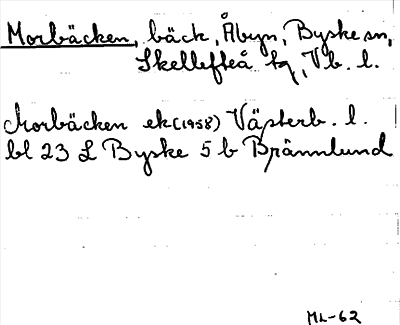 Morbäcken, bäck, Åbyn, Byske sn,
Skellefteå tg, Vb. l.
Morbäcken ek (1958) Västerb. l.
bl 23 L Byske 5 b Brännlund
ML-62